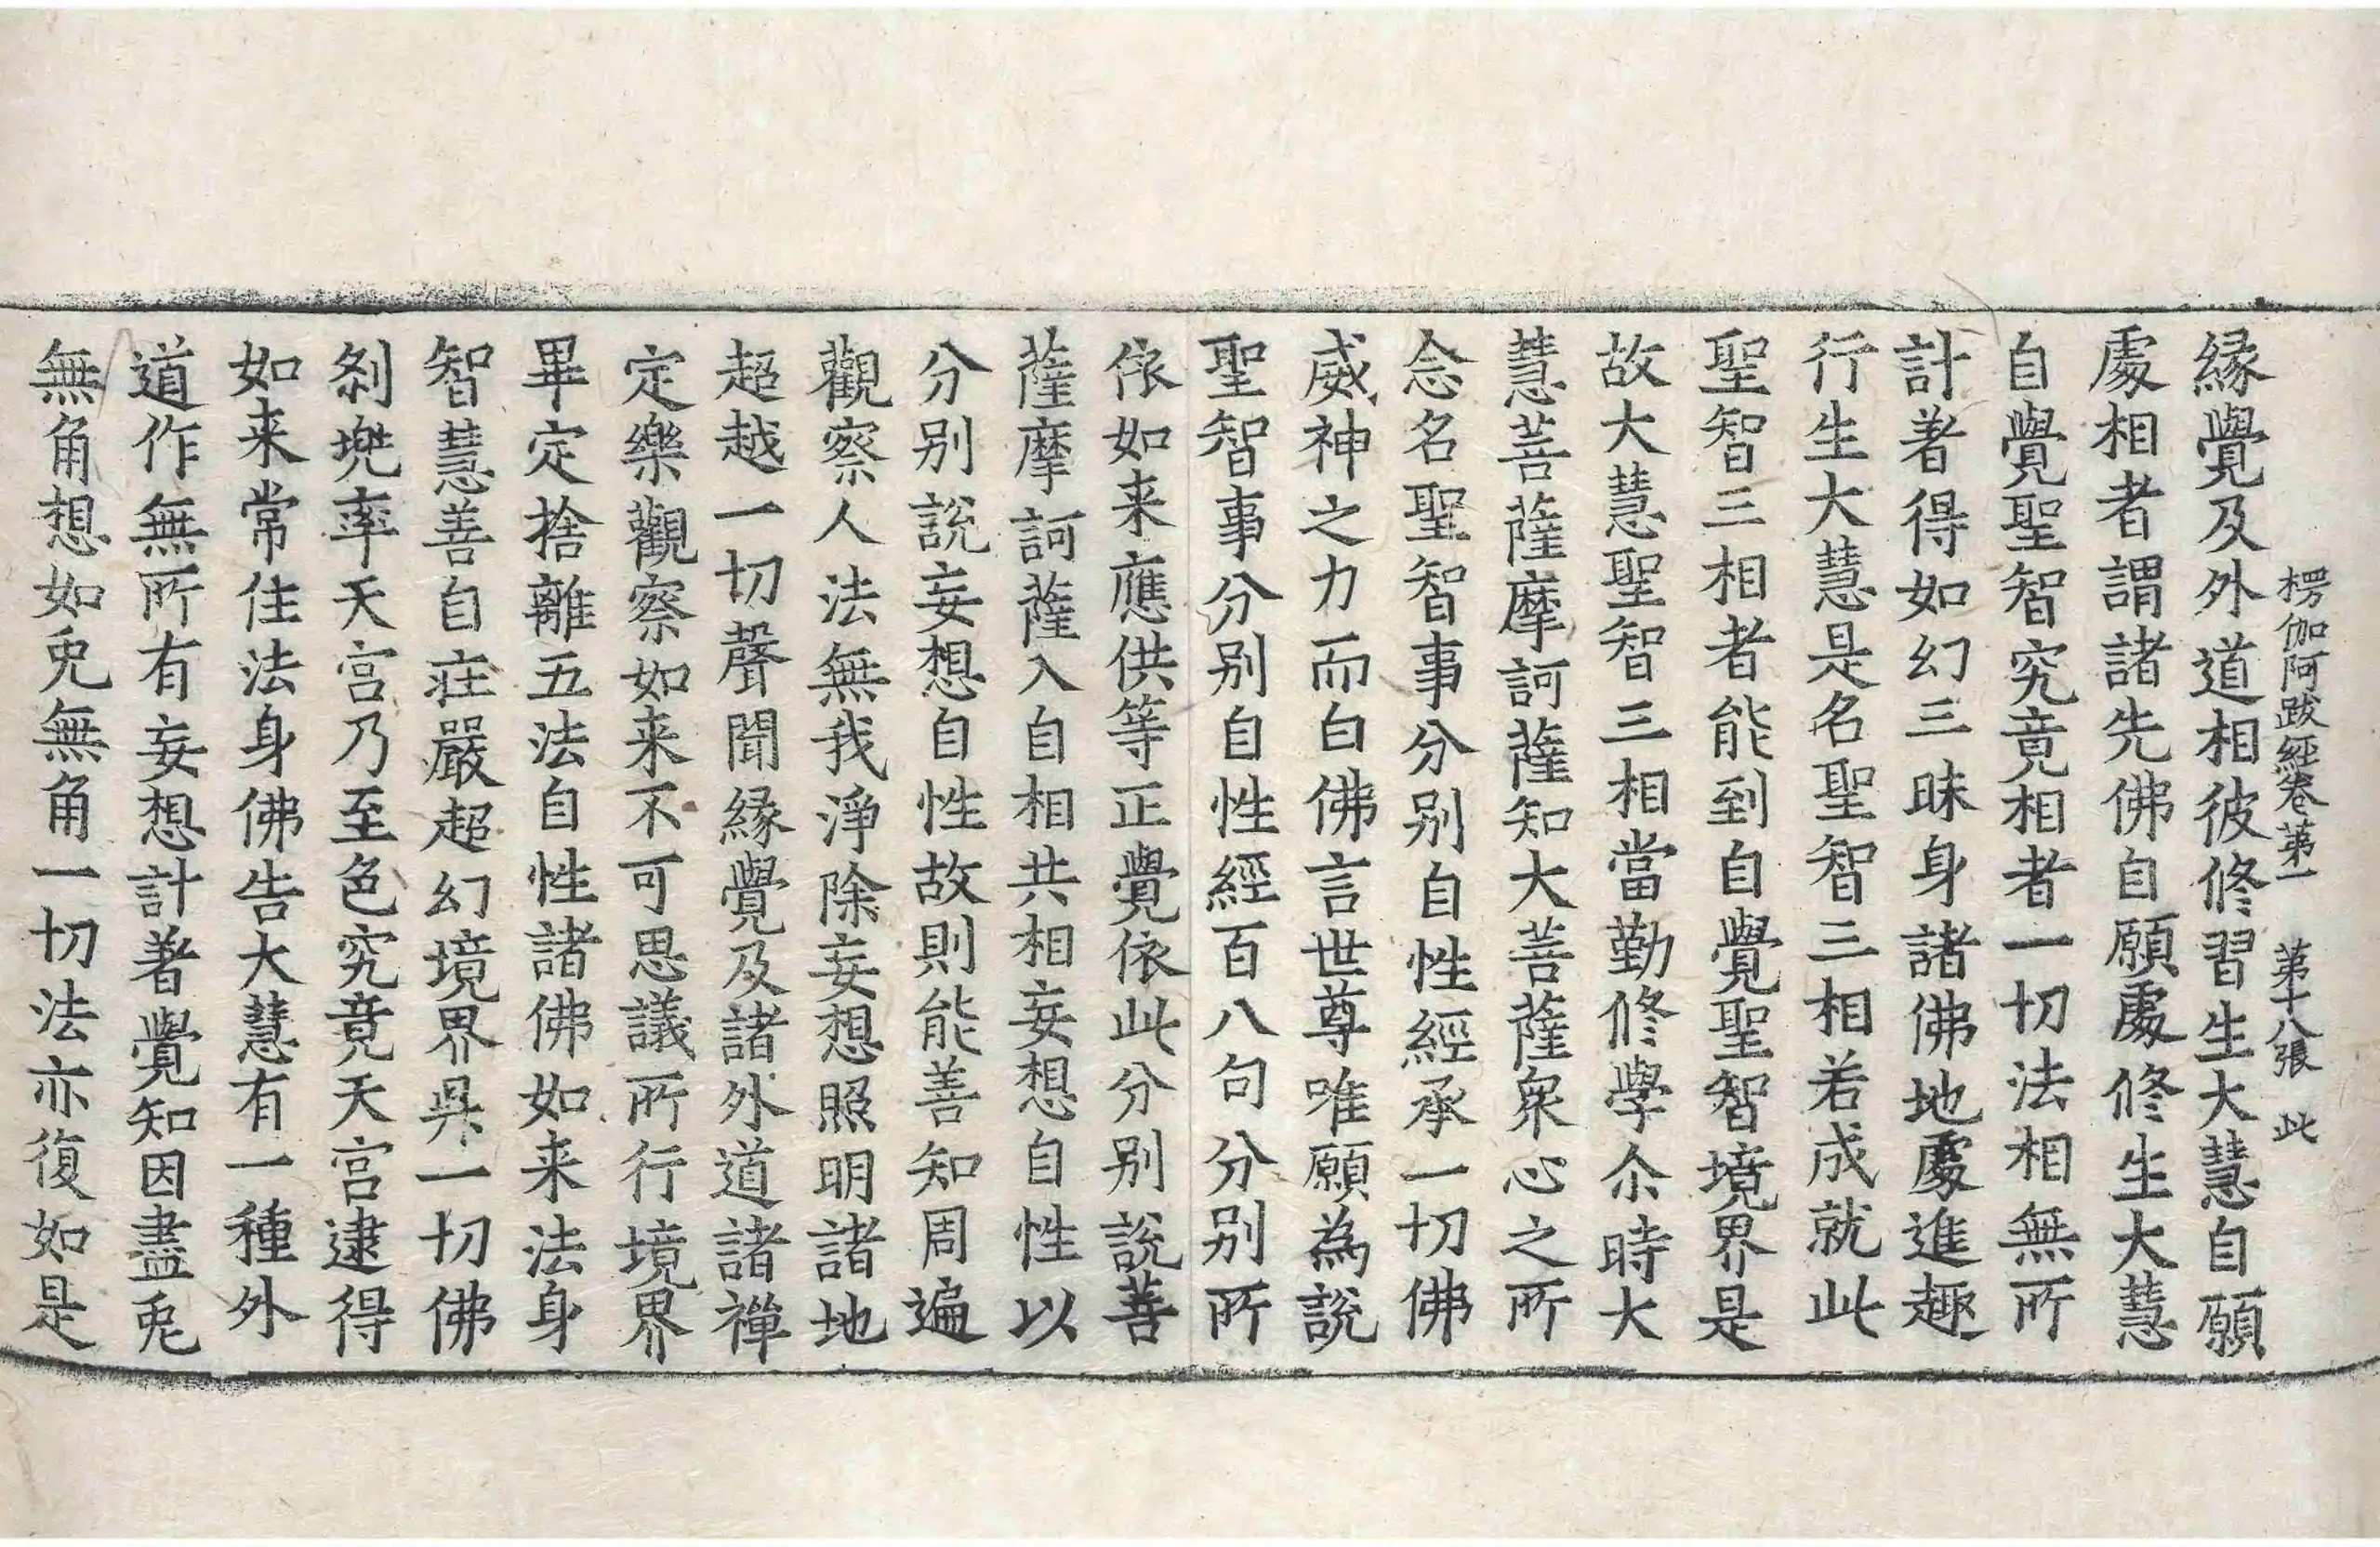 楞伽阿跋經卷第一 第十八張 此
緣覺及外道相彼修習生大慧自願
處相者謂諸先佛自願處修生大慧
自覺聖智究竟相者一切法相無所
計著得如幻三昧身諸佛地處進趣
行生大慧是名聖智三相若成就此
聖智三相者能到自覺聖智境界是
故大慧聖智三相當勤修學尒時大
慧菩薩摩訶薩知大菩薩衆心之所
念名聖智事分別自性經承一切佛
威神之力而白佛言世尊唯願為說
聖智事分別自性經百八句分別所
依如来應供等正覺依此分別說菩
薩摩訶薩入自相共相妄想自性以
分別說妄想自性故則能善知周遍
觀察人法無我淨除妄想照明諸地
超越一切聲聞緣覺及諸外道諸禪
定樂觀察如来不可思議所行境界
畢定捨離五法自性諸佛如来法身
智慧善自莊嚴超幻境界昇一切佛
刹兜率天宮乃至色究竟天宮逮得
如来常住法身佛告大慧有一種外
道作無所有妄想計著覺知因盡兎
無角想如兎無角一切法亦復如是